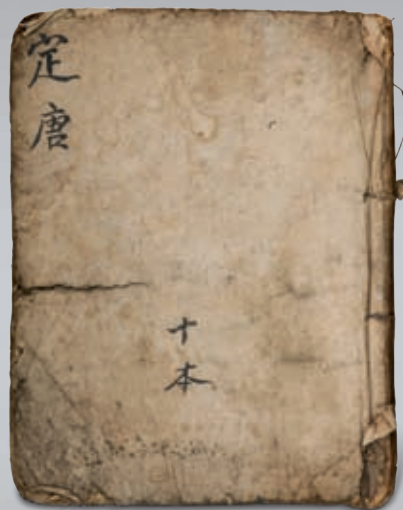 定唐
十本